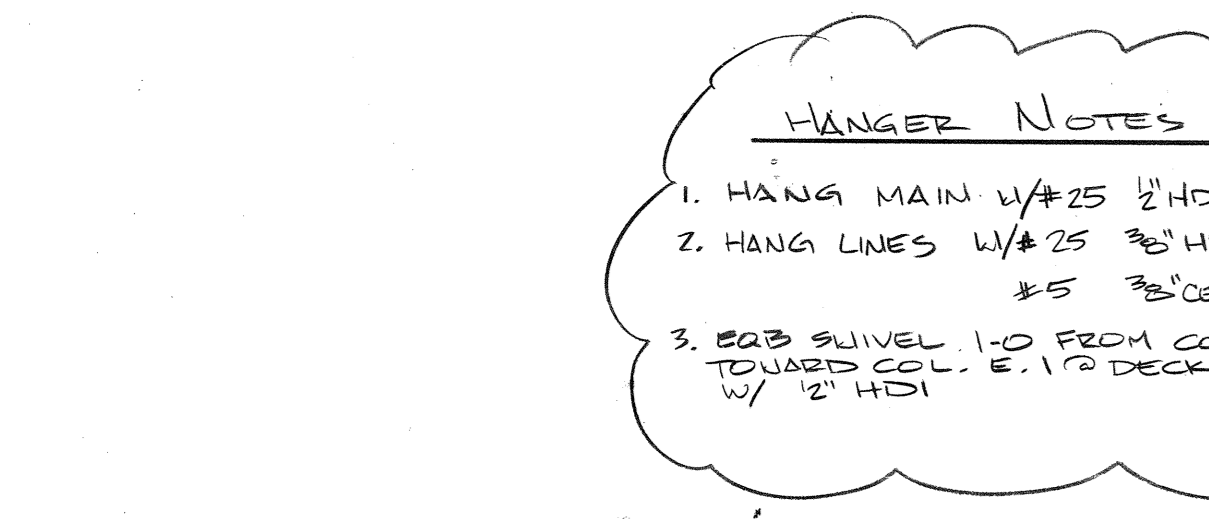 HANGER NOTES
1. HANG MAIN W/#25 1/2" HD
2. HANG LINES W/# 25 3/8" H
#5 3/8" CE
3. EQB SWIVEL 1-0 FROM CO
TOWARD COL. E.1 @ DECK
W/ 1/2" HDI